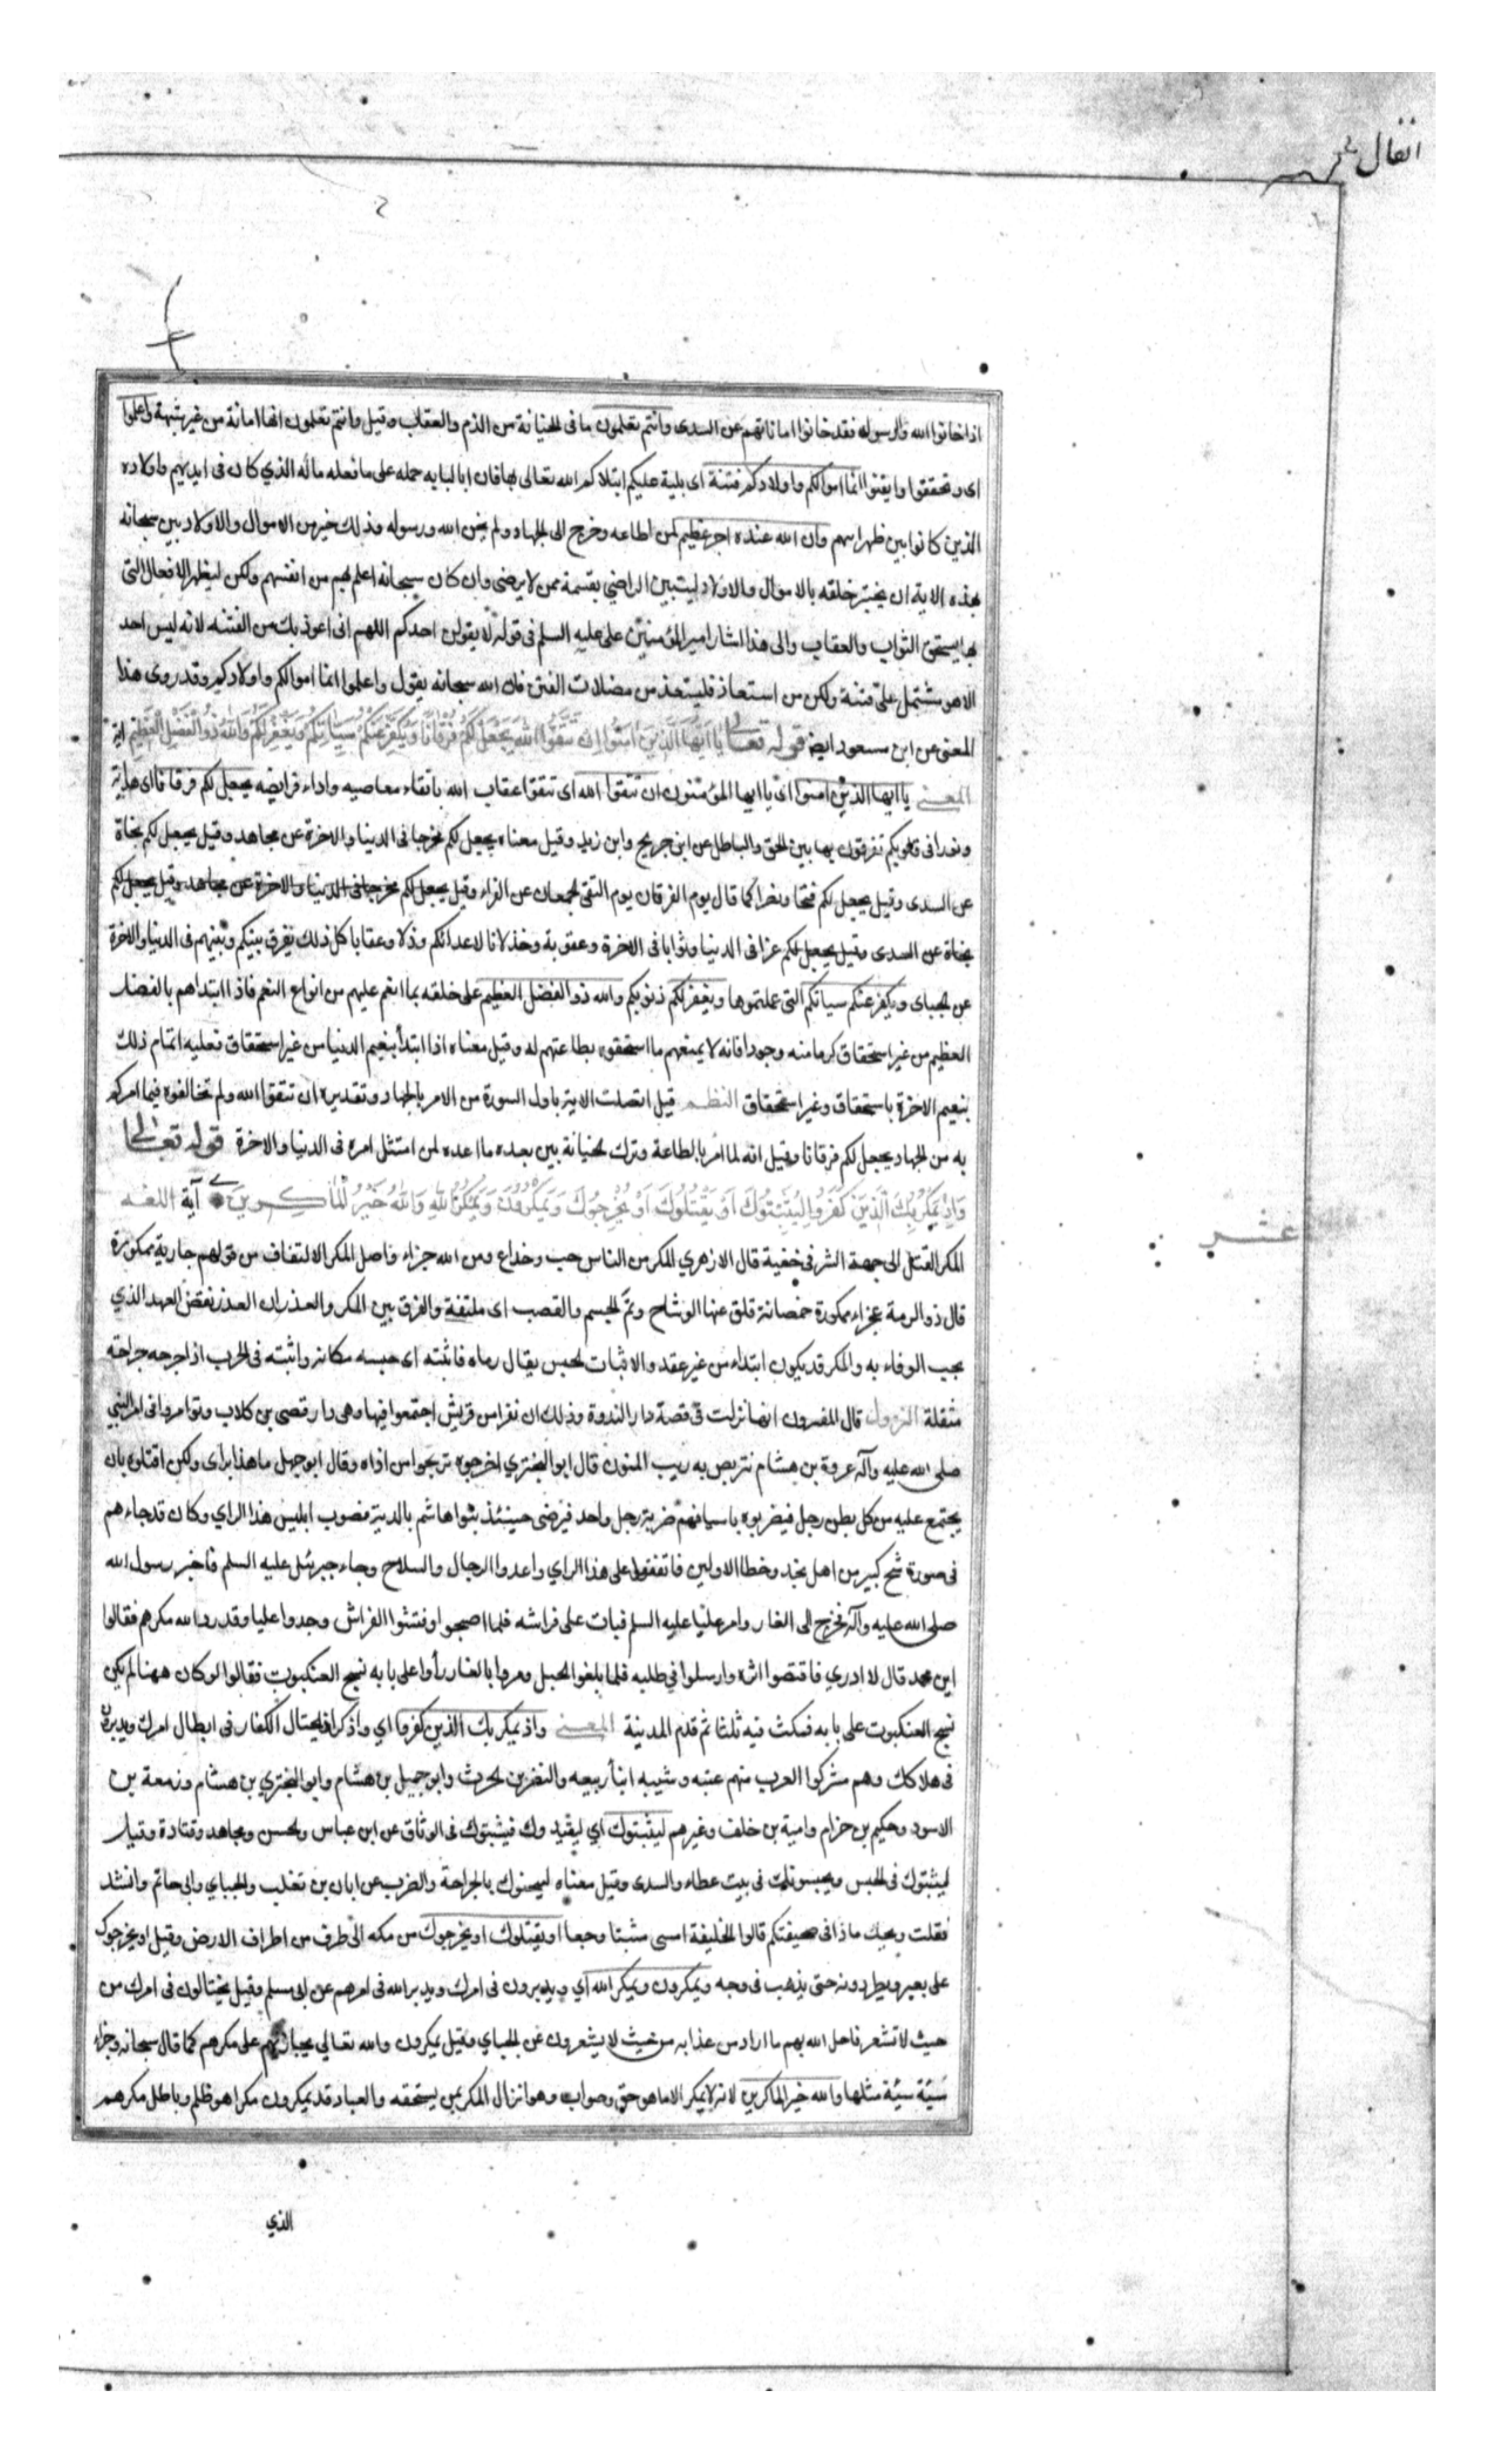 انفال
اذا خانوا الله والرسوله فقد خانوا اماناتهم عن السدى وانتم تعلمون ما فى الخيانة من الذم والعقاب وقيل وانتم تعلمون انها امانة من غير شبهة واعلموا
اى وتحققوا وايقنوا انما اموالكم واولادكم فتنة اى بلية عليكم ابتلاكم الله تعالى بها فان ابا لبابه حمله على ما فعله ماله الذي كان فى ايديهم واولاده
الذين كانوا بين ظهرانيهم وان الله عنده اجر عظيم لمن اطاعه وخرج الى الجهاد ولم يخن الله ورسوله وذلك خير من الاموال والاولاد بين سبحانه
بهذه الاية ان يختبر خلقه بالاموال والاولاد ليتبين الراضي بقسمه ممن لا يرضى وان كان سبحانه اعلم بهم من انفسهم ولكن ليظهر الافعال التى
بها يستحق الثواب والعقاب والى هذا اشار امير المؤمنين على عليه السلم فى قوله لا يقولن احدكم اللهم انى اعوذ بك من الفتنه لانه ليس احد
الا هو مشتمل على فتنة ولكن من استعاذ فليستعذ من مضلات الفتن فان الله سبحانه يقول واعلموا انما اموالكم واولادكم وقد روى هذا
المعنى عن ابن مسعود ايضا قوله تعالى يَا اَيُّهَا الَّذِينَ اٰمَنُوا اِنْ تَتَّقُوا اللهَ يَجْعَلْ لَكُمْ فُرْقَانًا وَيُكَفِّرْ عَنْكُمْ سَيِّاٰتِكُمْ وَيَغْفِرْ لَكُمْ وَاللهُ ذُو الْفَضْلِ الْعَظِيمِ اية
المعنى يا ايها الذين امنوا اى يا ايها المؤمنون ان تتقوا الله اى تتقوا عقاب الله باتقاء معاصيه واداء فرايضه يجعل لكم فرقانا اى هداية
ونورا فى قلوبكم تفرقون بها بين الحق والباطل عن ابن جريج وابن زيد وقيل معناه يجعل لكم مخرجا فى الدنيا والاخرة عن مجاهد وقيل يجعل لكم نجاة
عن السدى وقيل يجعل لكم فتحا ونصرا كما قال يوم الفرقان يوم التقى الجمعان عن الفراء وقيل يجعل لكم مخرجا فى الدنيا والاخرة عن مجاهد وقيل يجعل لكم
نجاة عن السدى وقيل يجعل لكم عزا فى الدنيا وثوابا فى الاخرة وعقوبة وخذلانا لاعدائكم وذلا وعقابا كل ذلك يفرق بينكم وبينهم فى الدنيا والاخرة
عن الجباى ويكفر عنكم سياتكم التى عملتموها ويغفر لكم ذنوبكم والله ذو الفضل العظيم على خلقه بما انعم عليهم من انواع النعم فاذا ابتداهم بالفضل
العظيم من غير استحقاق كرما منه وجودا فانه لا يمنعهم ما استحقوه بطاعتهم له وقيل معناه اذا ابتدأ بنعيم الدنيا من غير استحقاق فعليه اتمام ذلك
بنعيم الاخرة باستحقاق وغير استحقاق النظم قيل اتصلت الاية باول السورة من الامر بالجهاد وتقديره ان تتقوا الله ولم تخالفوه فيما امركم
به من الجهاد يجعل لكم فرقانا وقيل انه لما امر بالطاعة وترك الخيانة بين بعده ما اعده لمن امتثل امره فى الدنيا والاخرة قوله تعالى
وَاِذْ يَمْكُرُ بِكَ الَّذِينَ كَفَرُوا لِيُثْبِتُوكَ اَوْ يَقْتُلُوكَ اَوْ يُخْرِجُوكَ وَيَمْكُرُونَ وَيَمْكُرُ اللهُ وَاللهُ خَيْرُ الْمَاكِرِينَ آية اللغه
عشر
المكر الفتل الى جهة الشر فى خفية قال الازهري المكر من الناس خب وخداع ومن الله جزاء واصل المكر الالتفاف من قولهم جارية ممكورة
قال ذو الرمة عجزاء ممكورة خمصانة قلق عنها الوشاح وتم الجسم والقصب اى ملتفة والفرق بين المكر والغدر ان الغدر نقض العهد الذي
يجب الوفاء به والمكر قد يكون ابتداء من غير عقد والاثبات الحبس يقال رماه فاثبته اى حبسه مكانه واثبته فى الحرب اذا جرحه جراحة
مثقلة النزول قال المفسرون انها نزلت فى قصة دار الندوة وذلك ان نفرا من قريش اجتمعوا فيها وهى دار قصى بن كلاب وتوامروا فى امر النبي
صلى الله عليه وآله عروة بن هشام نتربص به ريب المنون قال ابو البختري اخرجوه تريحوا من اذاه وقال ابو جهل ما هذا براى ولكن اقتلوه بان
يجتمع عليه من كل بطن رجل فيضربوه باسيافهم ضربة رجل واحد فيرضى حينئذ بنوا هاشم بالدية فصوب ابليس هذا الراي وكان قد جاءهم
فى صورة شيخ كبير من اهل نجد وخطا الاولين فاتفقوا على هذا الراي واعدوا الرجال والسلاح وجاء جبرئيل عليه السلم فاخبر رسول الله
صلى الله عليه وآله فخرج الى الغار وامر عليا عليه السلم فبات على فراشه فلما اصبحوا وفتشوا الفراش وجدوا عليا وقد رد الله مكرهم فقالوا
اين محمد قال لا ادري فاقتصوا اثره وارسلوا في طلبه فلما بلغوا الجبل ومروا بالغار رأوا على بابه نسج العنكبوت فقالوا لو كان ههنا لم يكن
نسج العنكبوت على بابه فمكث فيه ثلثا ثم قدم المدينة المعنى واذ يمكر بك الذين كفروا اي واذكر اذ يحتال الكفار فى ابطال امرك ويدبرون
فى هلاكك وهم مشركوا العرب منهم عتبه وشيبه ابنا ربيعه والنضر بن الحرث وابو جهل بن هشام وابو البختري بن هشام وزمعة بن
الاسود وحكيم بن حزام وامية بن خلف وغيرهم ليثبتوك أي ليقيدوك فيثبتوك فى الوثاق عن ابن عباس والحسن ومجاهد وقتادة وقيل
ليثبتوك فى الحبس ويحبسونك فى بيت عطاء والسدى وقيل معناه ليثخنوك بالجراحة والضرب عن ابان بن تغلب والجباي وابى حاتم وانشد
فقلت ويحك ماذا فى صحيفتكم قالوا الخليفة امسى مثبتا وجعا او يقتلوك او يخرجوك من مكه الى طرف من اطراف الارض وقيل او يخرجوك
على بعير ويطردونه حتى يذهب فى وجه ويمكرون ويمكر الله أي ويدبرون فى امرك ويدبر الله فى امرهم عن ابى مسلم وقيل يحتالون فى امرك من
حيث لا تشعر فاحل الله بهم ما اراد من عذابه من حيث لا يشعرون عن الجباي وقيل يمكرون والله تعالي يجازيهم على مكرهم كما قال سبحانه وجزاء
سيئة سيئة مثلها والله خير الماكرين لانه لا يمكر الا ما هو حق وصواب وهو انزال المكر بمن يستحقه والعباد قد يمكرون مكرا هو ظلم وباطل مكرهم
الذي